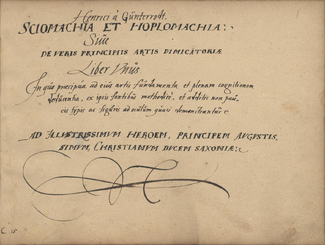 Henrici à Günterrodt.
SCIOMACHIA ET HOPLOMACHIA:
Siue
DE VERIS PRINCIPIIS ARTIS DIMICATORIÆ
Liber Vnus.
In quo præcipua ad eius artis fundamenta et plenam cognitionem
ex ipsis fontibus methodicè, et additis non
typis ac figuris ad oculum quasi demonstrantur:
AD ILLVSTRISSIMVM HEROEM, PRINCIPEM AVGVSTIS.
SIMVM, CHRISTIANVM DVCEM SAXONIÆ: